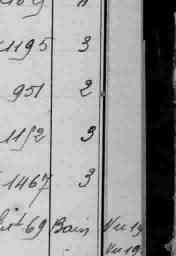 1195 3
951 2
1152 3
1467 3
69 Bain Vu 19
Vu 19